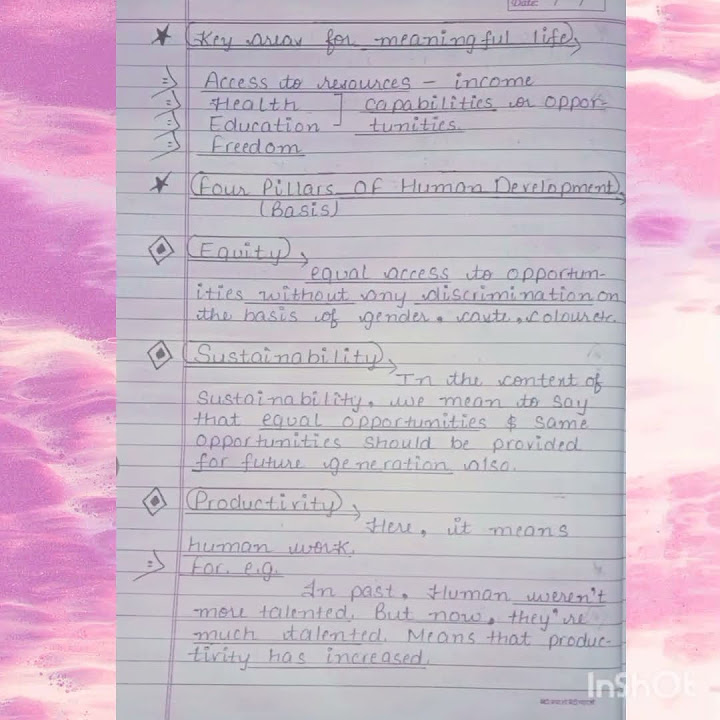 Date: / /
★ Key areas for meaningful life
⇒ Access to resources – income
⇒ Health ] capabilities or oppor-
⇒ Education – tunities.
⇒ Freedom
★ Four Pillars Of Human Development
(Basis)
Equity
equal access to opportun-
ities without any discrimination on
the basis of gender, caste, colour etc.
Sustainability
In the context of
Sustainability, we mean to say
that equal opportunities & same
opportunities should be provided
for future generation also.
Productivity
Here, it means
human work.
⇒ For. e.g.
In past, Human weren't
more talented. But now, they're
much talented. Means that produc-
tivity has increased.
InShOt